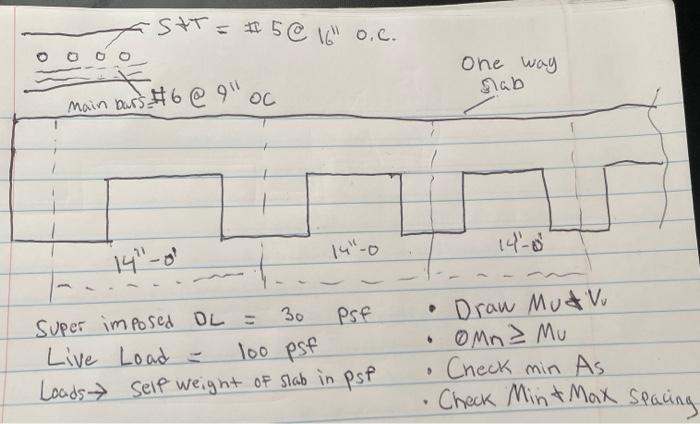 S&T = #5 @ 16" O.C.
One way
slab
main bars = #6 @ 9" OC
14"-0'
14"-0
14"-0'
Super imposed DL = 30 psf
Live Load = 100 psf
Loads → self weight of slab in psf
• Draw Mu & Vu
• ØMn ≥ Mu
• Check min As
• Check Min & Max spacing